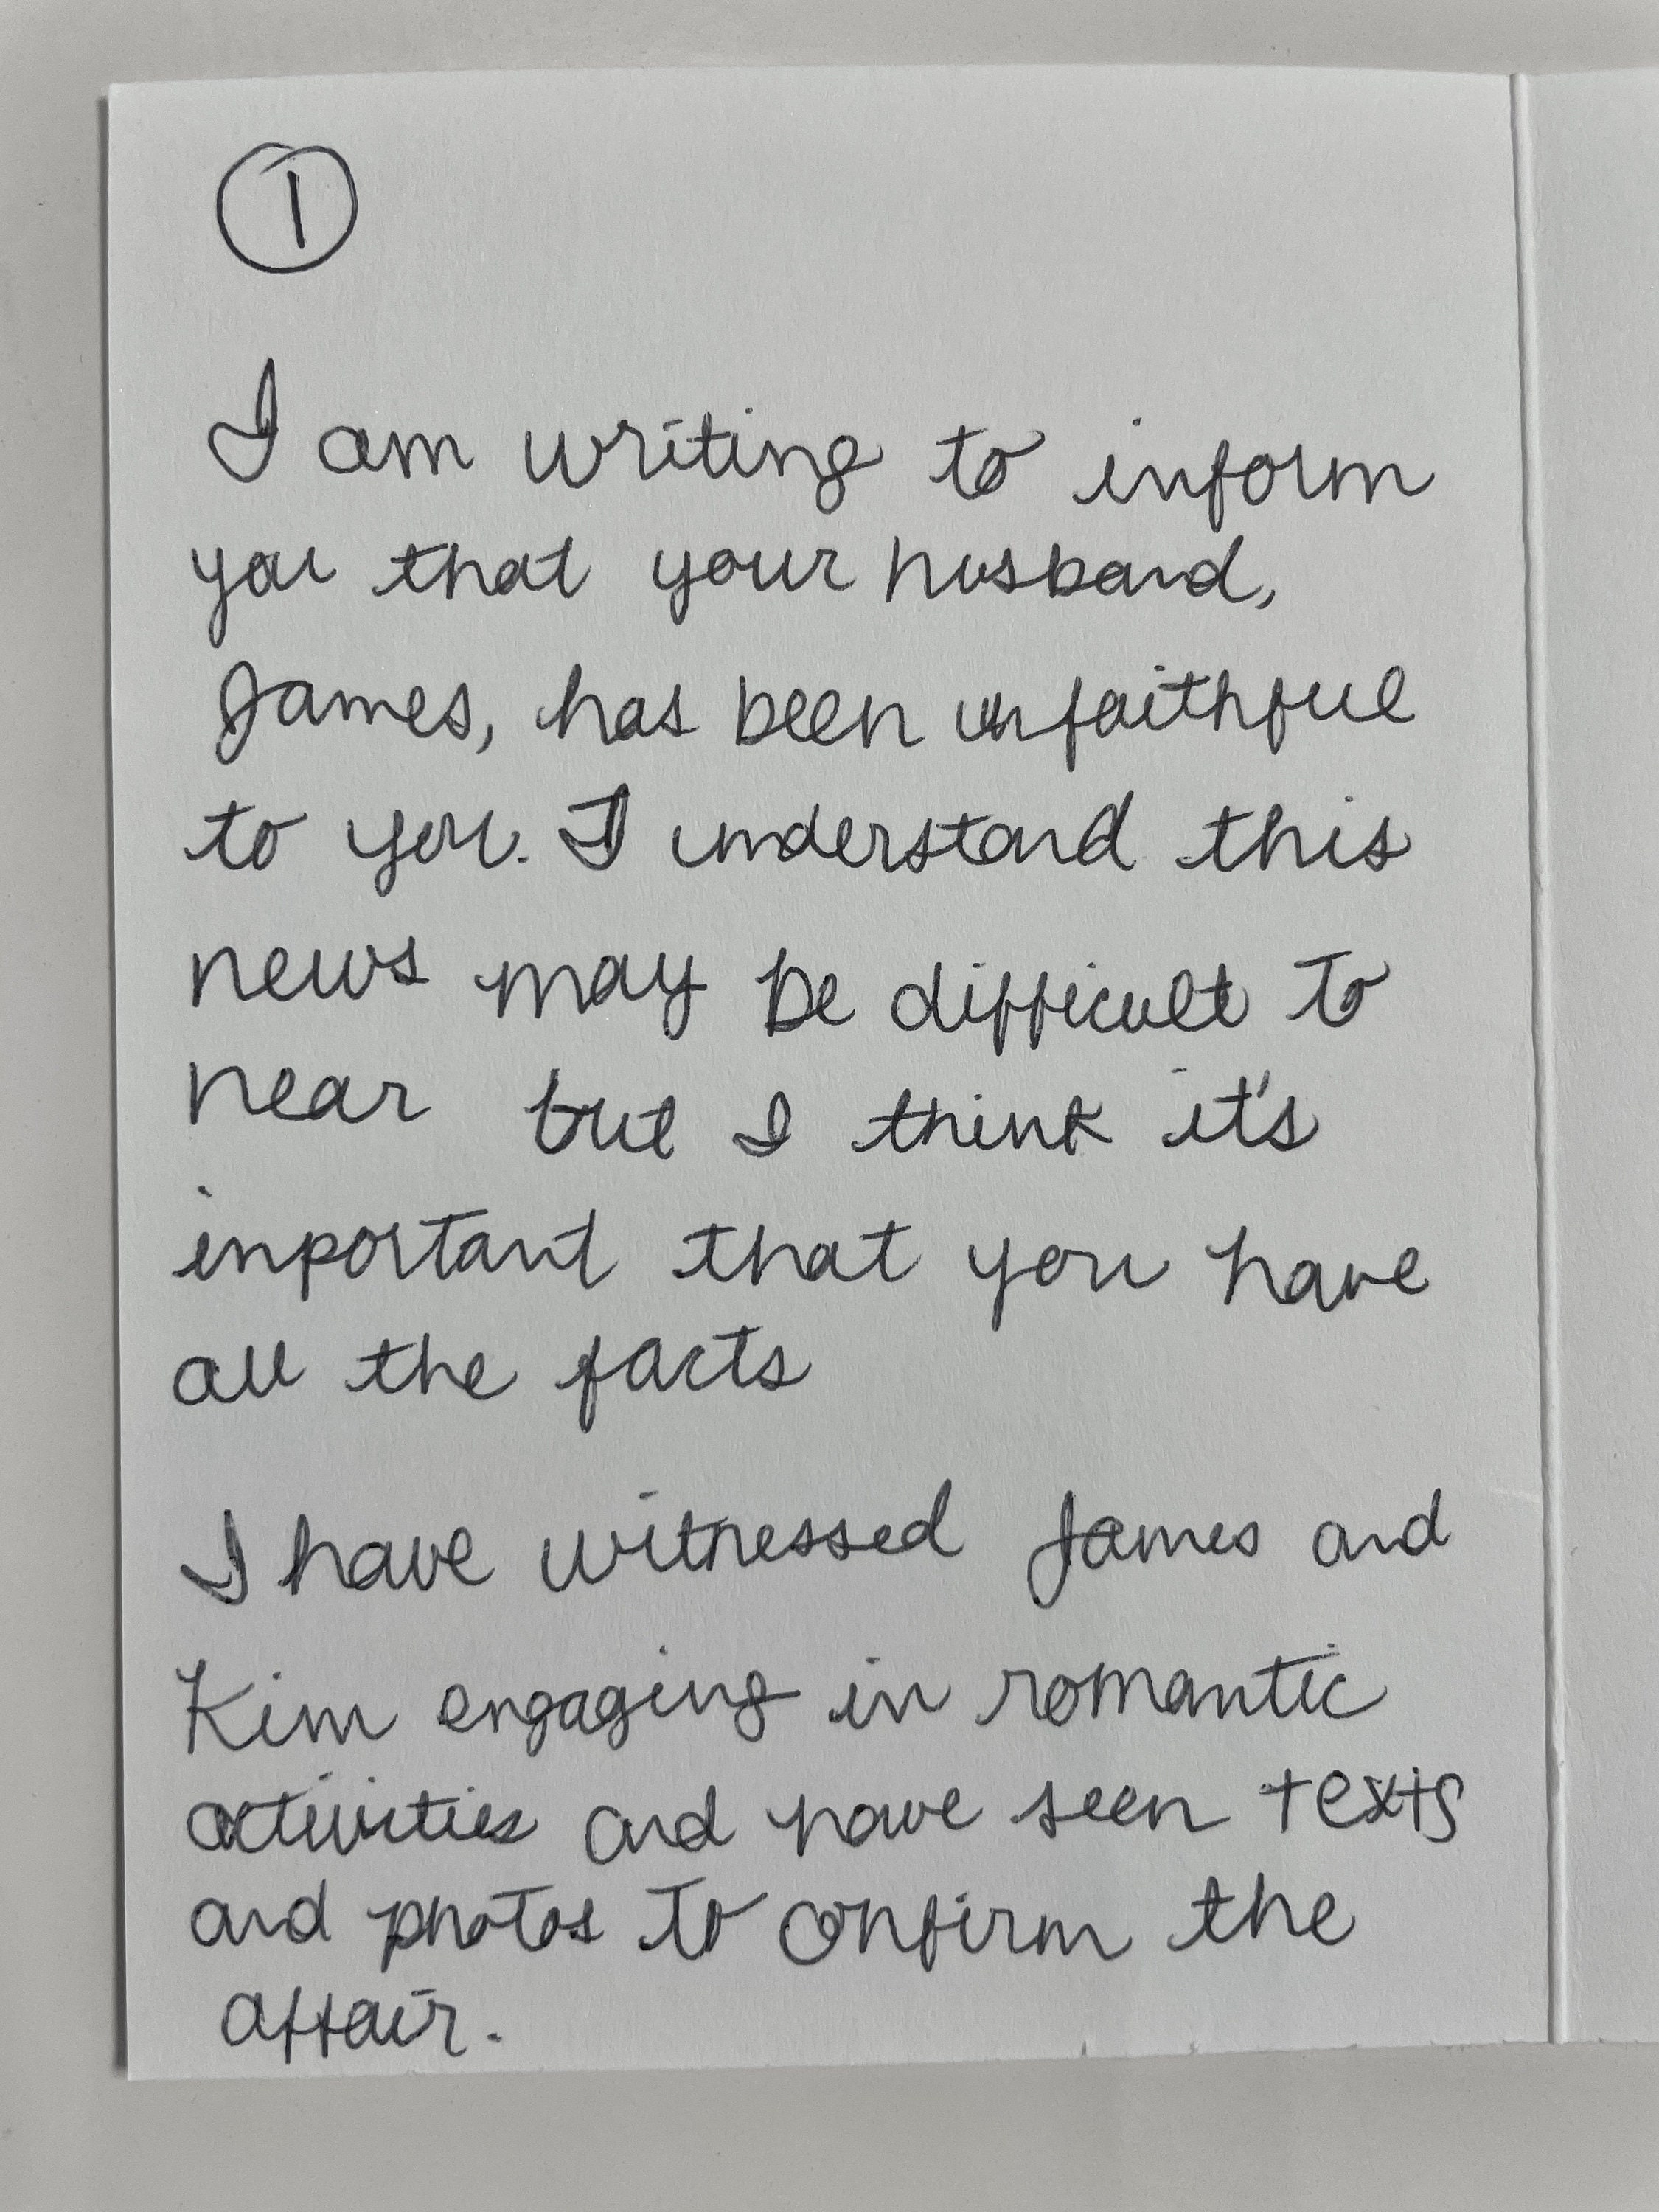 1
I am writing to inform
you that your husband,
James, has been unfaithful
to you. I understand this
news may be difficult to
hear but I think it's
inportant that you have
all the facts
I have witnessed James and
Kim engaging in romantic
activities and have seen texts
and photos to confirm the
affair.